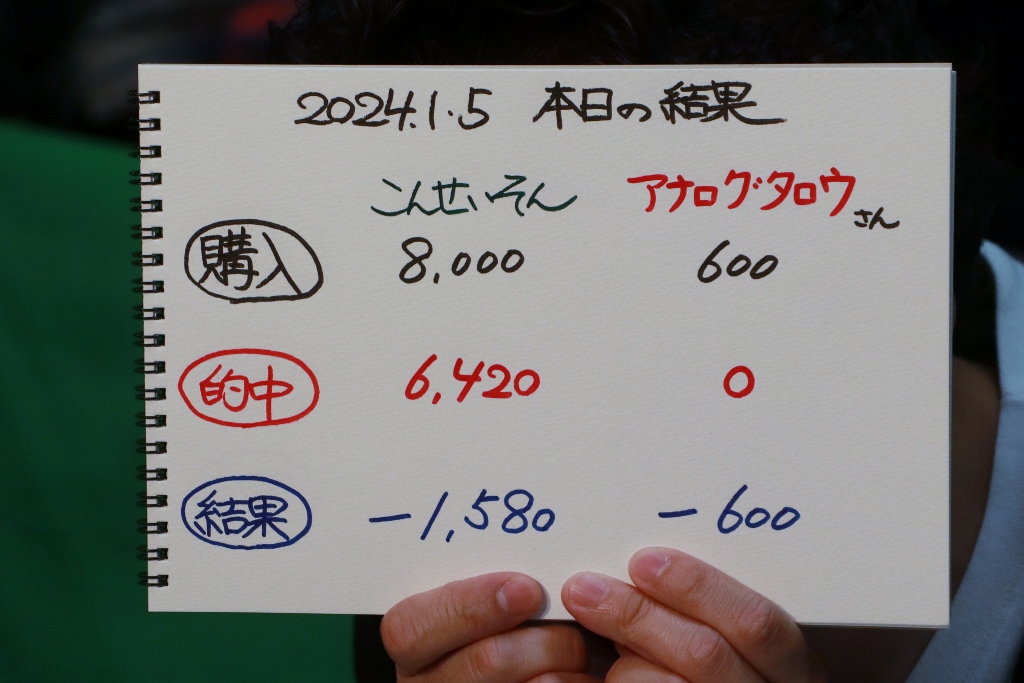 2024.1.5 本日の結果
こんせいそん アナログ・タロウさん
購入 8,000 600
的中 6,420 0
結果 -1,580 -600